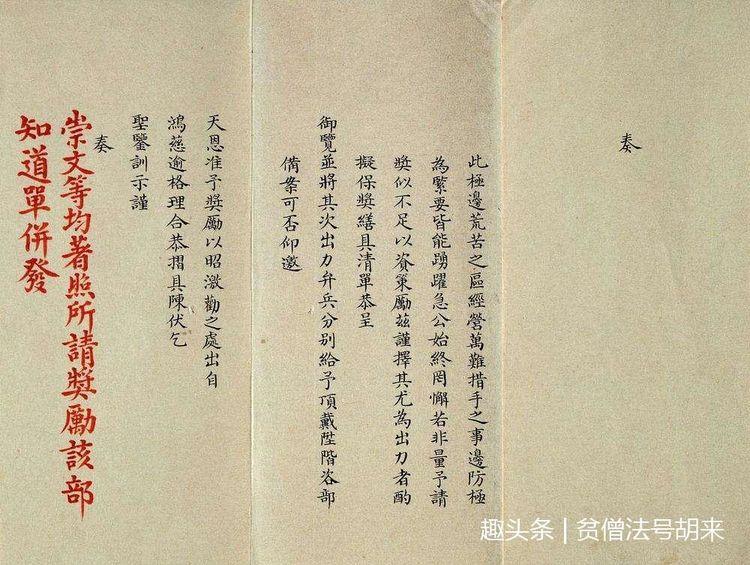 奏
此極邊荒苦之區經營萬難措手之事邊防極
為緊要皆能踴躍急公始終罔懈若非量予請
獎似不足以資策勵茲謹擇其尤為出力者酌
擬保獎繕具清單恭呈
御覽並將其次出力弁兵分別給予頂戴陞階咨部
備案可否仰邀
天恩准予獎勵以昭激勸之處出自
鴻慈逾格理合恭摺具陳伏乞
聖鑒訓示謹
奏
崇文等均著照所請獎勵該部
知道單併發
趣头条 | 贫僧法号胡来